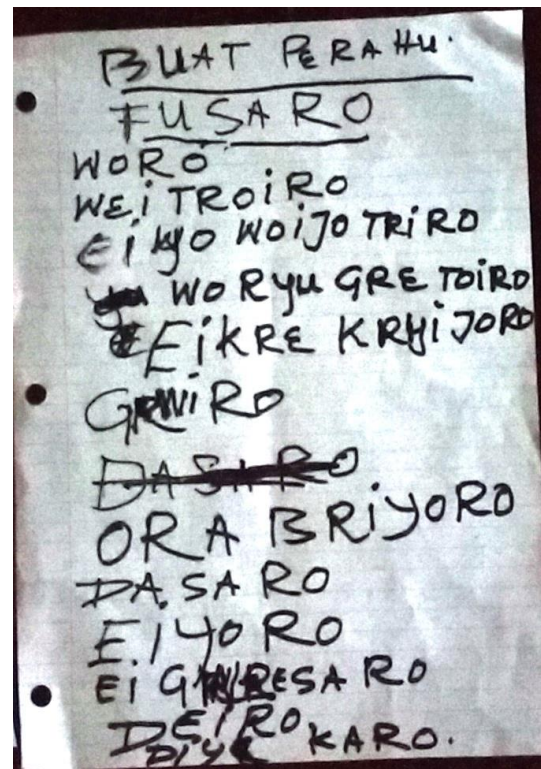 BUAT PERAHU.
FUSARO
WORO
WEiTROiRO
Ei WOiJO TRiRO
WORyU GRE TOiRO
EiKRE KRYiJORO
ORA BRiyORO
DA.SARO
E.I YO RO
Ei
DEiRO
KARO.